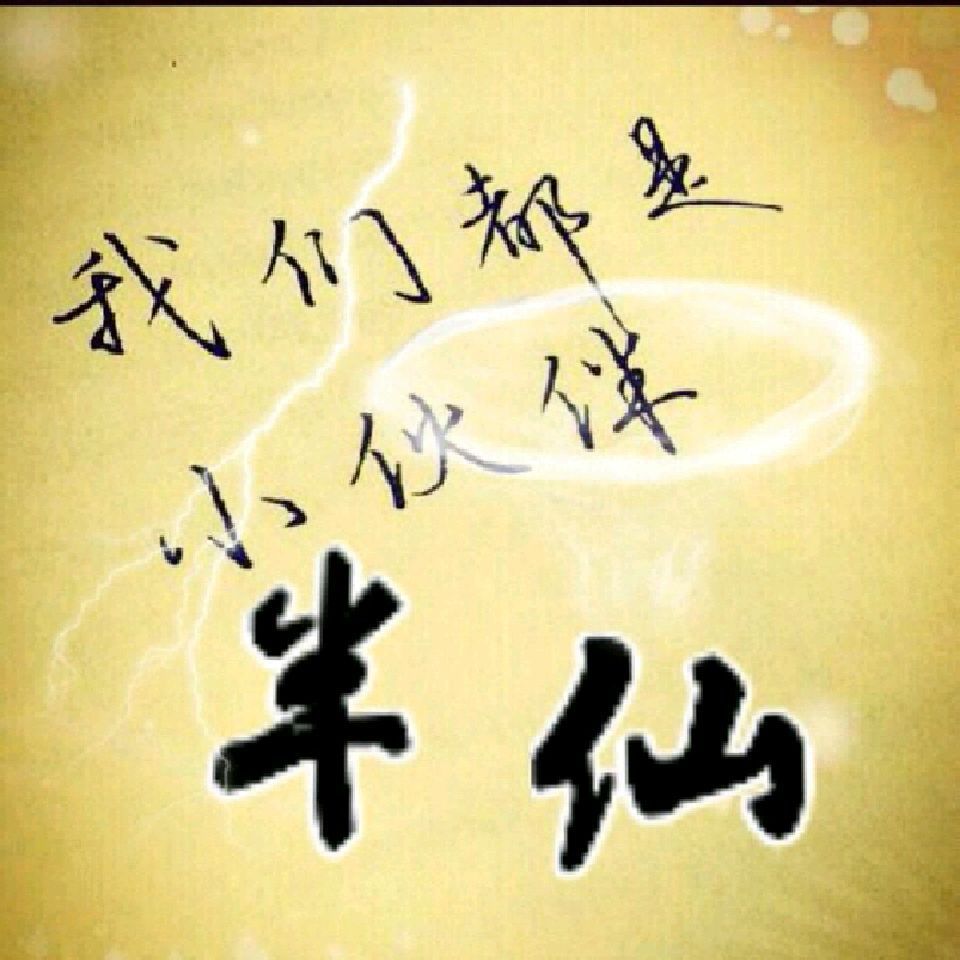 我们都是
小伙伴
半仙